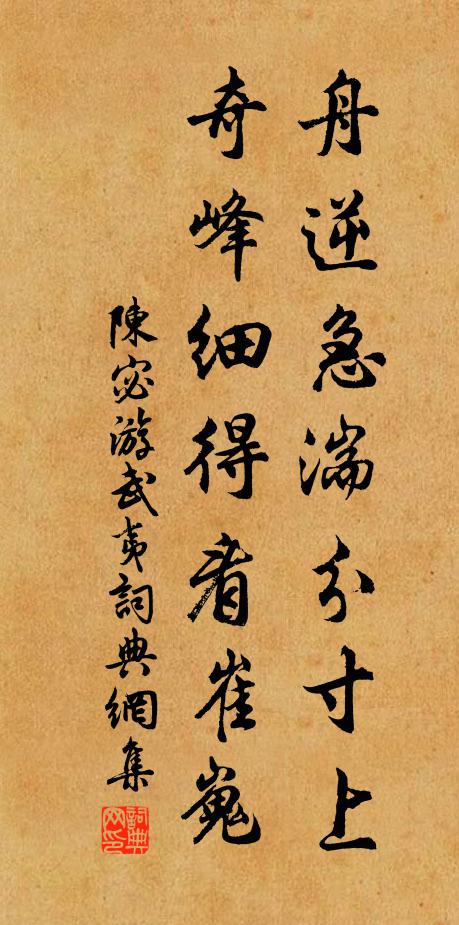 舟逆急湍分寸上
奇峰細得看崔嵬
陳宓游武夷詞典網集
詞典網印